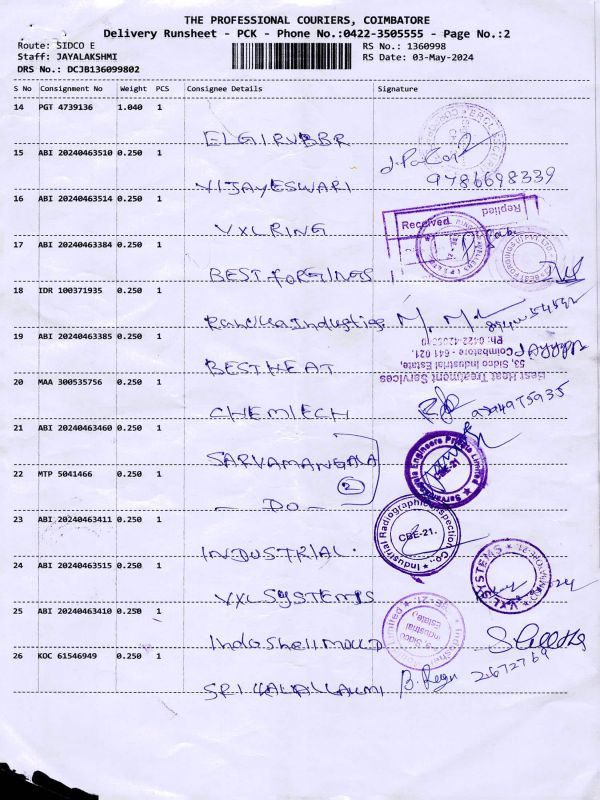 THE PROFESSIONAL COURIERS, COIMBATORE
Delivery Runsheet - PCK - Phone No.:0422-3505555 - Page No.:2
Route: SIDCO E
RS No.: 1360998
Staff: JAYALAKSHMI
RS Date: 03-May-2024
DRS No.: DCJB136099802
S No Consignment No Weight PCS Consignee Details Signature
14 PGT 4739136 1.040 1
ELGIRUBBR
15 ABI 20240463510 0.250 1
9786698339
VIJAYESWARI
16 ABI 20240463514 0.250 1
Replied
Received
VXLRING
17 ABI 20240463384 0.250 1
BEST FORGINGS
18 IDR 100371935 0.250 1
Industries
19 ABI 20240463385 0.250 1
Coimbatore - 641 021.
53, Sidco Industrial Estate,
Best Heat Treatment Services
BESTHEAT
20 MAA 300535756 0.250 1
CHEMTECH
21 ABI 20240463460 0.250 1
SARVAMANGALA
Engineers Private Limited
CBE-21
22 MTP 5041466 0.250 1
2
DO
23 ABI 20240463411 0.250 1
Industrial Radiographic Inspection Co.
CBE-21.
INDUSTRIAL.
24 ABI 20240463515 0.250 1
VXL SYSTEMS
VXL SYSTEMS
25 ABI 20240463410 0.250 1
Indoshell Mould
26 KOC 61546949 0.250 1
2672769
SRI